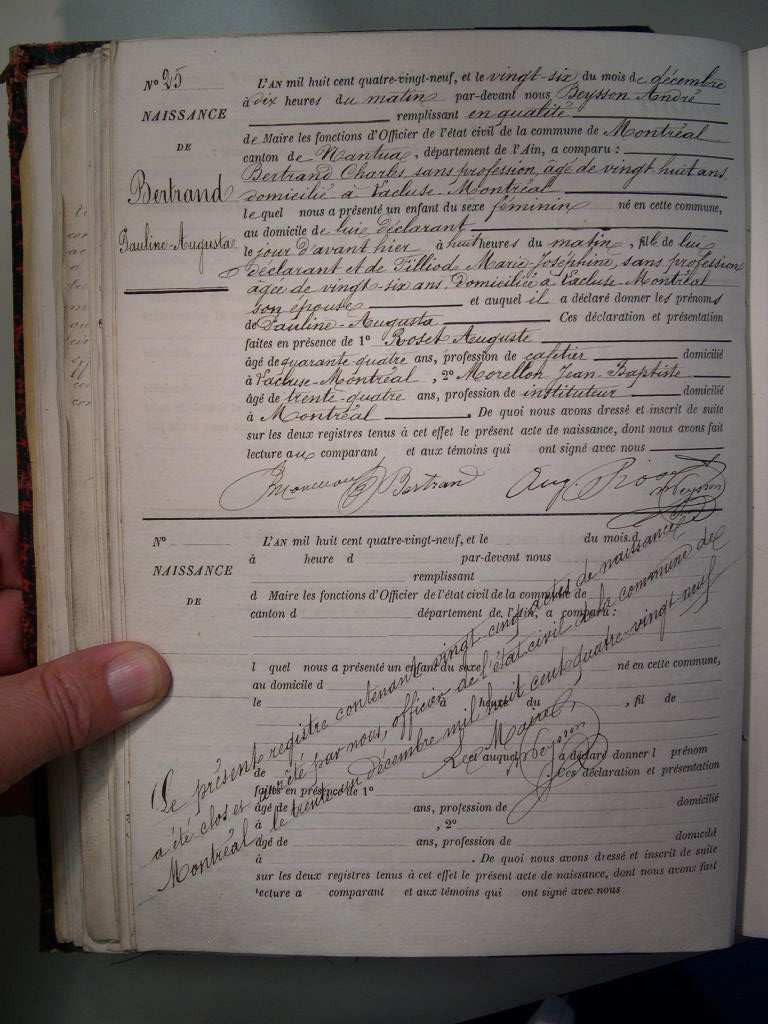 N° 25
NAISSANCE
DE
Bertrand
Pauline-Augusta
L'AN mil huit cent quatre-vingt-neuf, et le vingt-six du mois de décembre
à dix heures du matin par-devant nous Beysson André
remplissant en qualité
de Maire les fonctions d'Officier de l'état civil de la commune de Montréal
canton de Nantua, département de l'Ain, a comparu :
Bertrand Charles sans profession, âgé de vingt huit ans
domicilié à Vacluse-Montréal
lequel nous a présenté un enfant du sexe féminin né en cette commune,
au domicile de lui déclarant
le jour d'avant hier à huit heures du matin, fille de lui
déclarant et de Filliod Marie Joséphine, sans profession
âgée de vingt-six ans domiciliée à Vacluse-Montréal
son épouse et auquel il a déclaré donner les prénoms
de Pauline-Augusta Ces déclaration et présentation
faites en présence de 1° Roset Auguste
âgé de quarante-quatre ans, profession de cafetier domicilié
à Vacluse-Montréal, 2° Morellon Jean-Baptiste
âgé de trente-quatre ans, profession de instituteur domicilié
à Montréal. De quoi nous avons dressé et inscrit de suite
sur les deux registres tenus à cet effet le présent acte de naissance, dont nous avons fait
lecture au comparant et aux témoins qui ont signé avec nous
Bertrand Aug. Roset Beysson
N°
NAISSANCE
DE
L'AN mil huit cent quatre-vingt-neuf, et le du mois d
à heure d par-devant nous
remplissant
d Maire les fonctions d'Officier de l'état civil de la commune de
canton d département de l'Ain, a comparu :
l quel nous a présenté un enfant du sexe né en cette commune,
au domicile d
le à heure du , fil de
de et auquel a déclaré donner l prénom
Ces déclaration et présentation
faites en présence de 1°
âgé de ans, profession de domicilié
à , 2°
âgé de ans, profession de domicilié
à . De quoi nous avons dressé et inscrit de suite
sur les deux registres tenus à cet effet le présent acte de naissance, dont nous avons fait
lecture a comparant et aux témoins qui ont signé avec nous
Le présent registre contenant vingt-cinq actes de naissance
a été clos et arrêté par nous, officier de l'état civil de la commune de
Montréal le trente un décembre mil huit cent quatre-vingt neuf
Le Maire,
Beysson